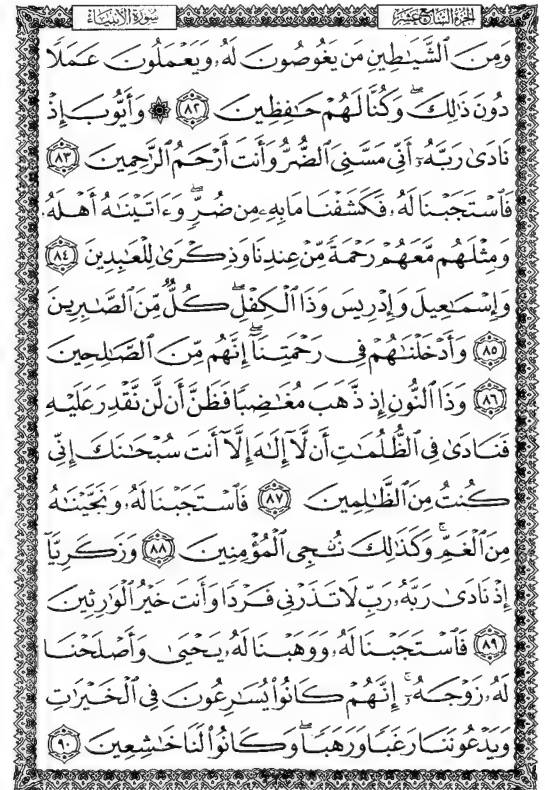 الجزء السابع عشر
سورة الأنبياء
وَمِنَ ٱلشَّيَـٰطِينِ مَن يَغُوصُونَ لَهُۥ وَيَعْمَلُونَ عَمَلًا
دُونَ ذَٰلِكَ ۖ وَكُنَّا لَهُمْ حَـٰفِظِينَ ٨٢ ۞ وَأَيُّوبَ إِذْ
نَادَىٰ رَبَّهُۥٓ أَنِّي مَسَّنِيَ ٱلضُّرُّ وَأَنتَ أَرْحَمُ ٱلرَّٰحِمِينَ ٨٣
فَٱسْتَجَبْنَا لَهُۥ فَكَشَفْنَا مَا بِهِۦ مِن ضُرٍّ ۖ وَءَاتَيْنَـٰهُ أَهْلَهُۥ
وَمِثْلَهُم مَّعَهُمْ رَحْمَةً مِّنْ عِندِنَا وَذِكْرَىٰ لِلْعَـٰبِدِينَ ٨٤
وَإِسْمَـٰعِيلَ وَإِدْرِيسَ وَذَا ٱلْكِفْلِ ۖ كُلٌّ مِّنَ ٱلصَّـٰبِرِينَ
٨٥ وَأَدْخَلْنَـٰهُمْ فِي رَحْمَتِنَآ ۖ إِنَّهُم مِّنَ ٱلصَّـٰلِحِينَ
٨٦ وَذَا ٱلنُّونِ إِذ ذَّهَبَ مُغَـٰضِبًا فَظَنَّ أَن لَّن نَّقْدِرَ عَلَيْهِ
فَنَادَىٰ فِي ٱلظُّلُمَـٰتِ أَن لَّآ إِلَـٰهَ إِلَّآ أَنتَ سُبْحَـٰنَكَ إِنِّي
كُنتُ مِنَ ٱلظَّـٰلِمِينَ ٨٧ فَٱسْتَجَبْنَا لَهُۥ وَنَجَّيْنَـٰهُ
مِنَ ٱلْغَمِّ ۚ وَكَذَٰلِكَ نُـۨجِي ٱلْمُؤْمِنِينَ ٨٨ وَزَكَرِيَّآ
إِذْ نَادَىٰ رَبَّهُۥ رَبِّ لَا تَذَرْنِي فَرْدًا وَأَنتَ خَيْرُ ٱلْوَٰرِثِينَ
٨٩ فَٱسْتَجَبْنَا لَهُۥ وَوَهَبْنَا لَهُۥ يَحْيَىٰ وَأَصْلَحْنَا
لَهُۥ زَوْجَهُۥٓ ۚ إِنَّهُمْ كَانُوا۟ يُسَـٰرِعُونَ فِي ٱلْخَيْرَٰتِ
وَيَدْعُونَنَا رَغَبًا وَرَهَبًا ۖ وَكَانُوا۟ لَنَا خَـٰشِعِينَ ٩٠